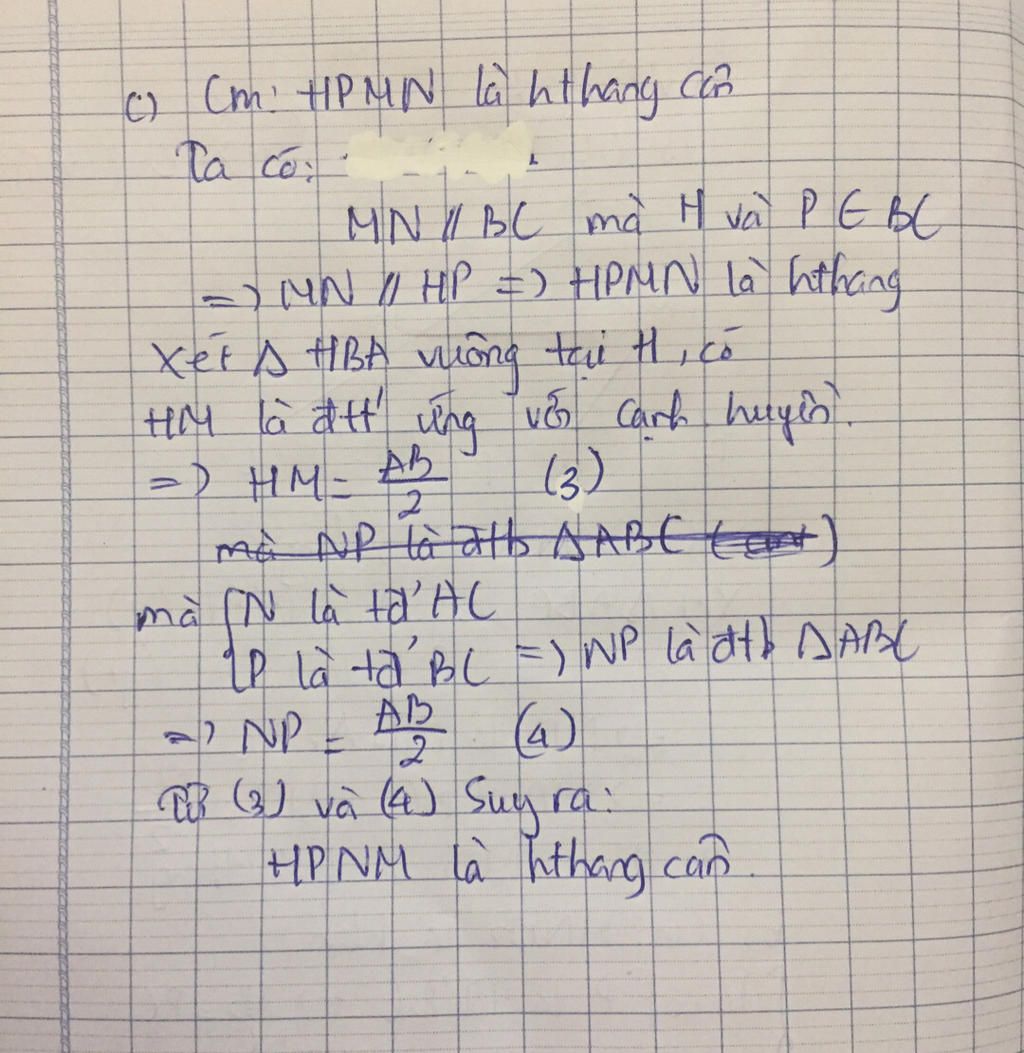 c) Cm: HPMN là hthang cân
Ta có:
MN // BC mà H và P ∈ BC
=> MN // HP => HPMN là hthang
Xét Δ HBA vuông tại H, có
HM là đtt' ứng với cạnh huyền.
=> HM = AB/2 (3)
mà NP là đtb ΔABC
mà { N là tđ' AC
P là tđ' BC => NP là đtb ΔABC
=> NP = AB/2 (4)
Từ (3) và (4) Suy ra:
HPNM là hthang cân.